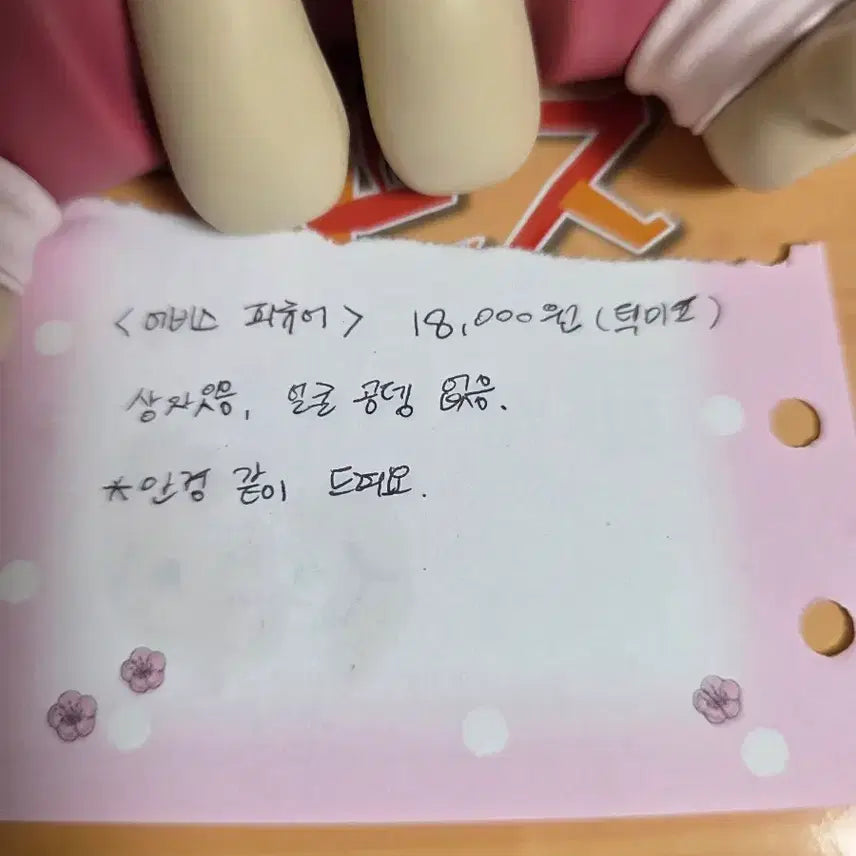 <에비스 피규어> 18,000원 (택미포)
상자있음, 얼굴 공뎅 없음.
*안경 같이 드려요.